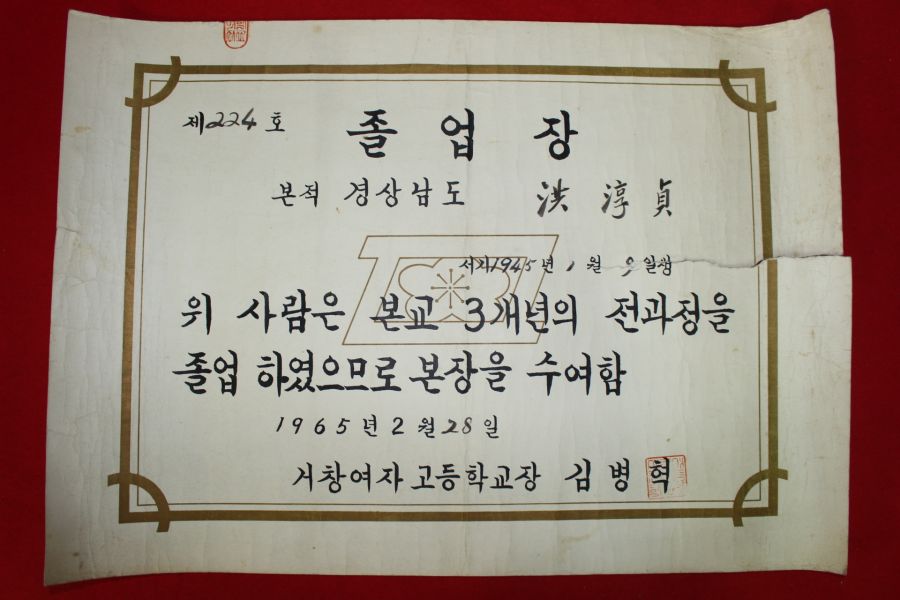 제224호
졸업장
본적 경상남도 洪淳貞
서기1945년 1월 9일생
위 사람은 본교 3개년의 전과정을
졸업 하였으므로 본장을 수여함
1965년2월28일
거창여자고등학교장 김병혁